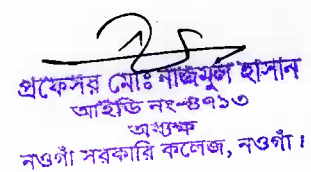 প্রফেসর মোঃ নাজমুল হাসান
আইডি নং-৪৭১৩
অধ্যক্ষ
নওগাঁ সরকারি কলেজ, নওগাঁ।